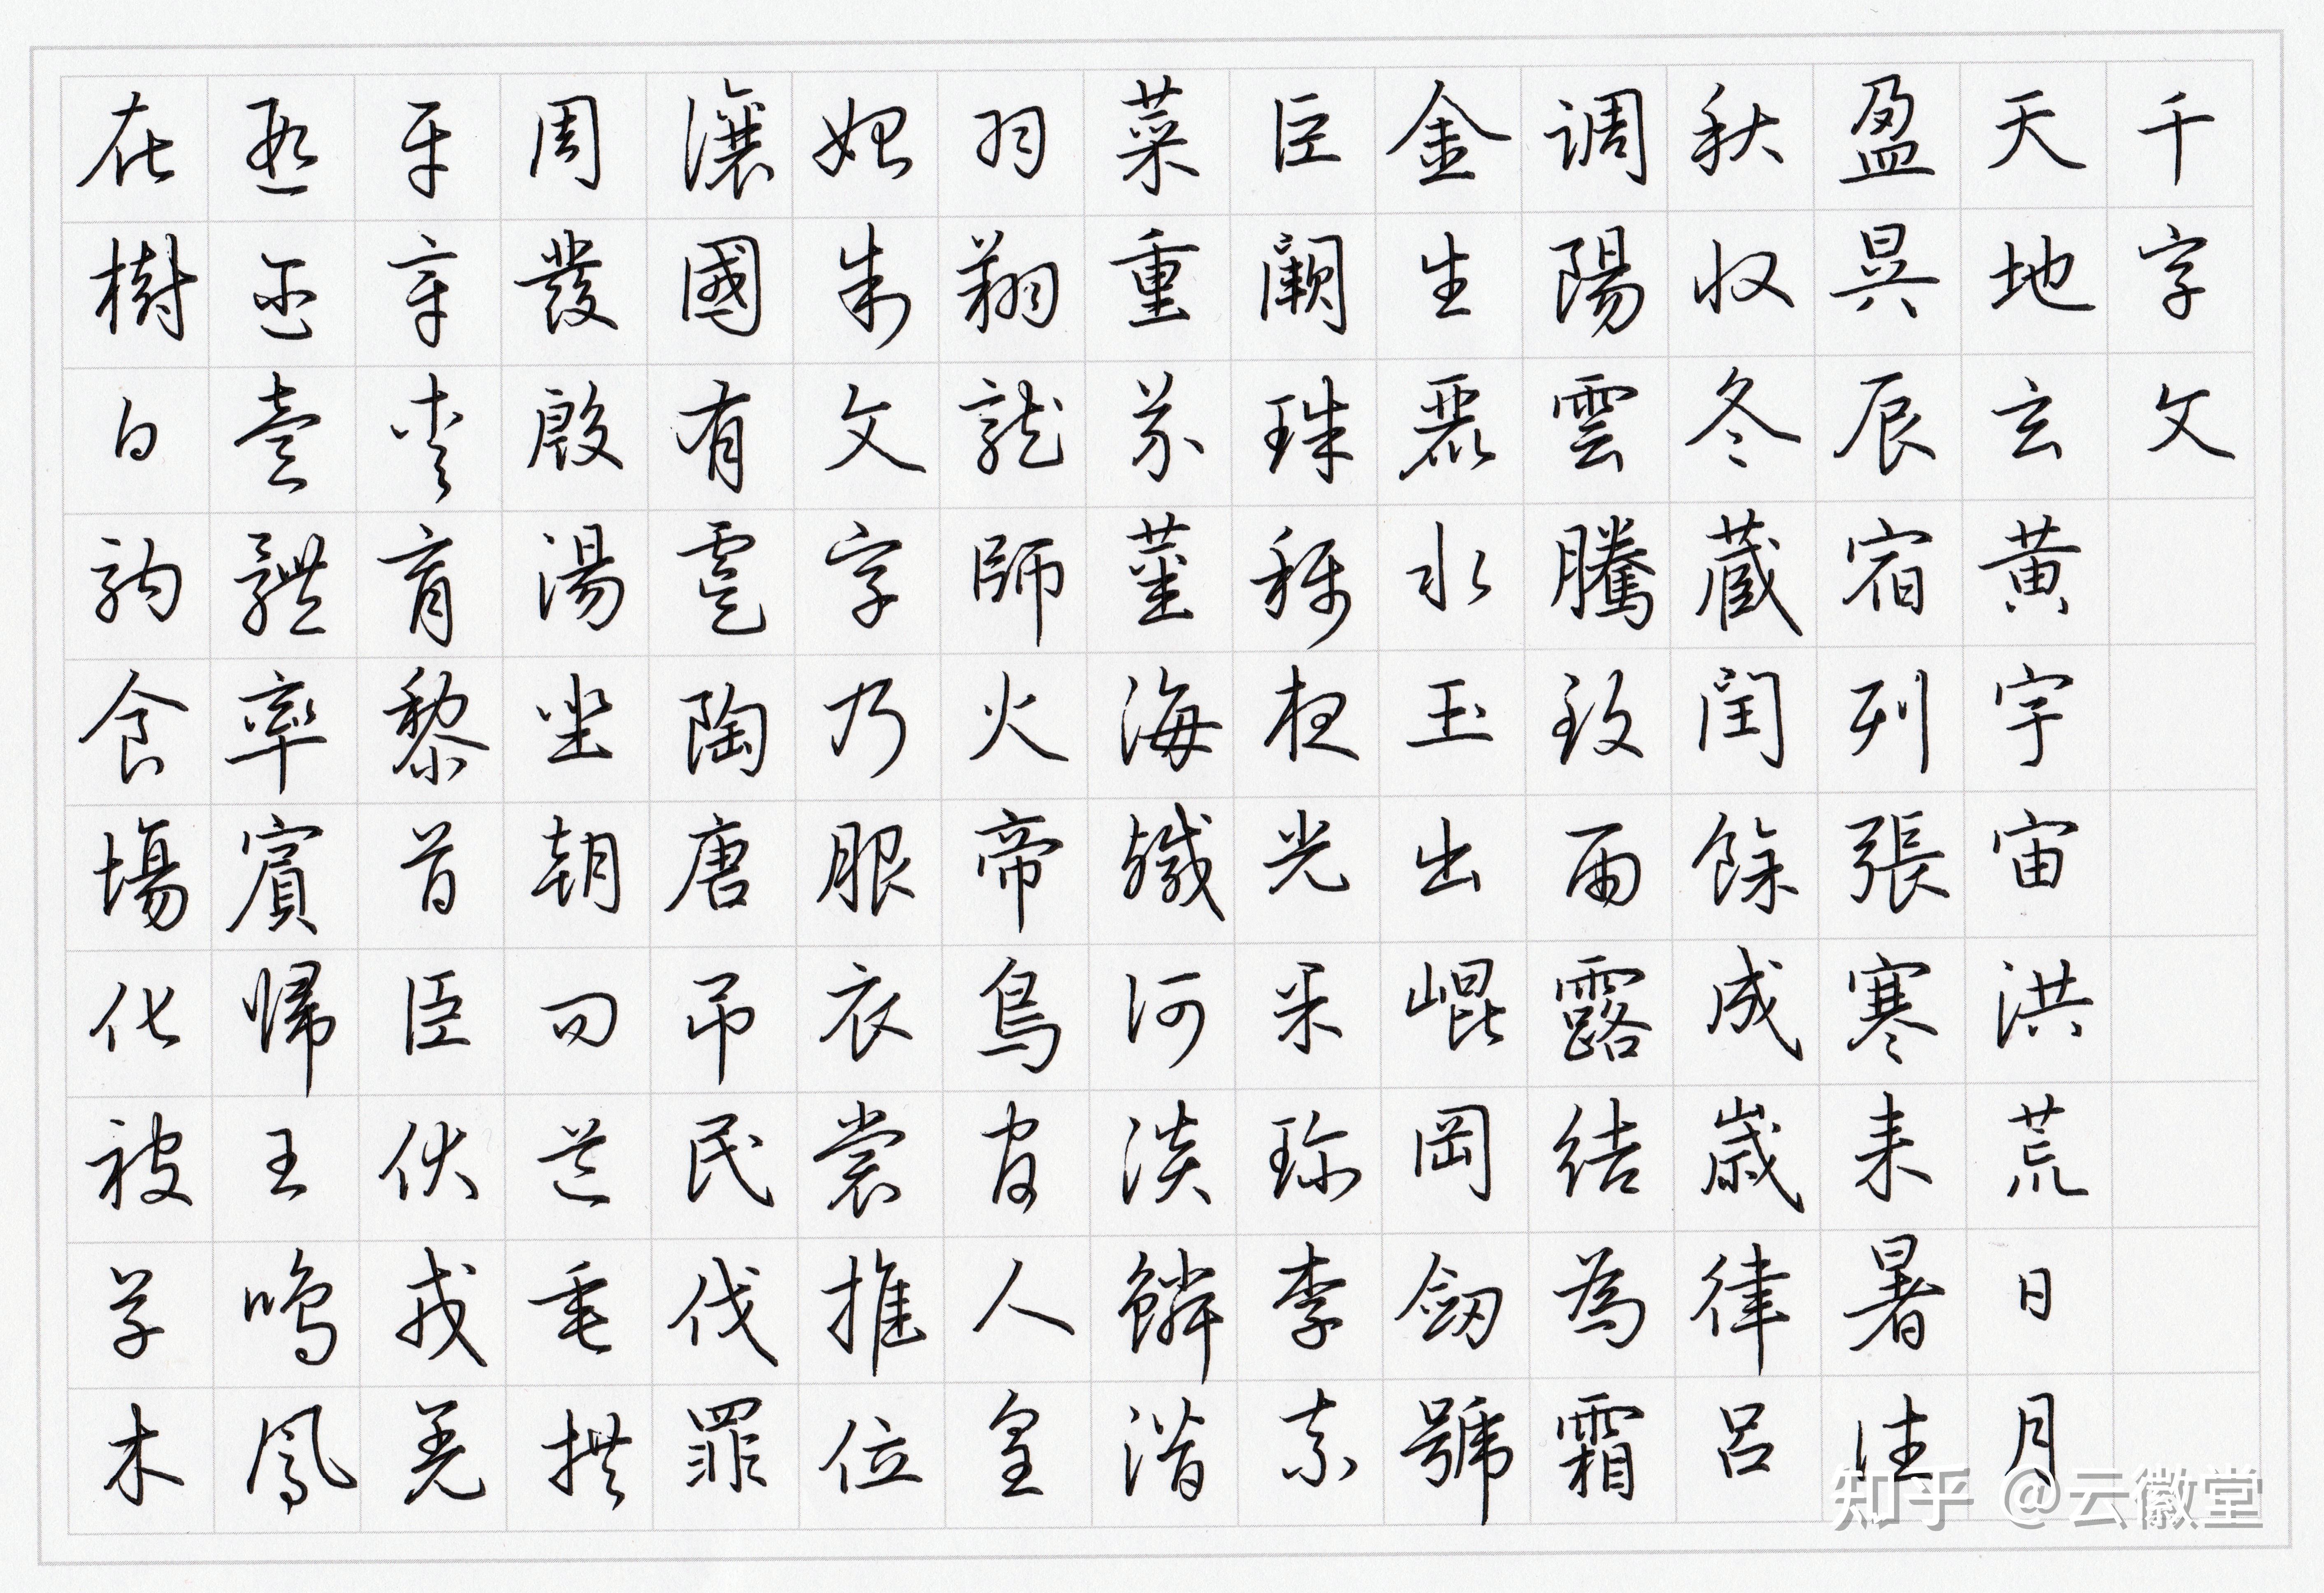 千字文
天地玄黄宇宙洪荒日月
盈昃辰宿列張寒来暑往
秋收冬藏閏餘成歲律呂
调陽雲騰致雨露結為霜
金生麗水玉出崐岡劒號
巨闕珠稱夜光果珍李柰
菜重芥薑海鹹河淡鱗潛
羽翔龍師火帝鳥官人皇
始制文字乃服衣裳推位
讓國有虞陶唐弔民伐罪
周發殷湯坐朝問道垂拱
平章愛育黎首臣伏戎羌
遐邇壹體率賓歸王鳴鳳
在樹白駒食場化被草木
知乎 @云徽堂